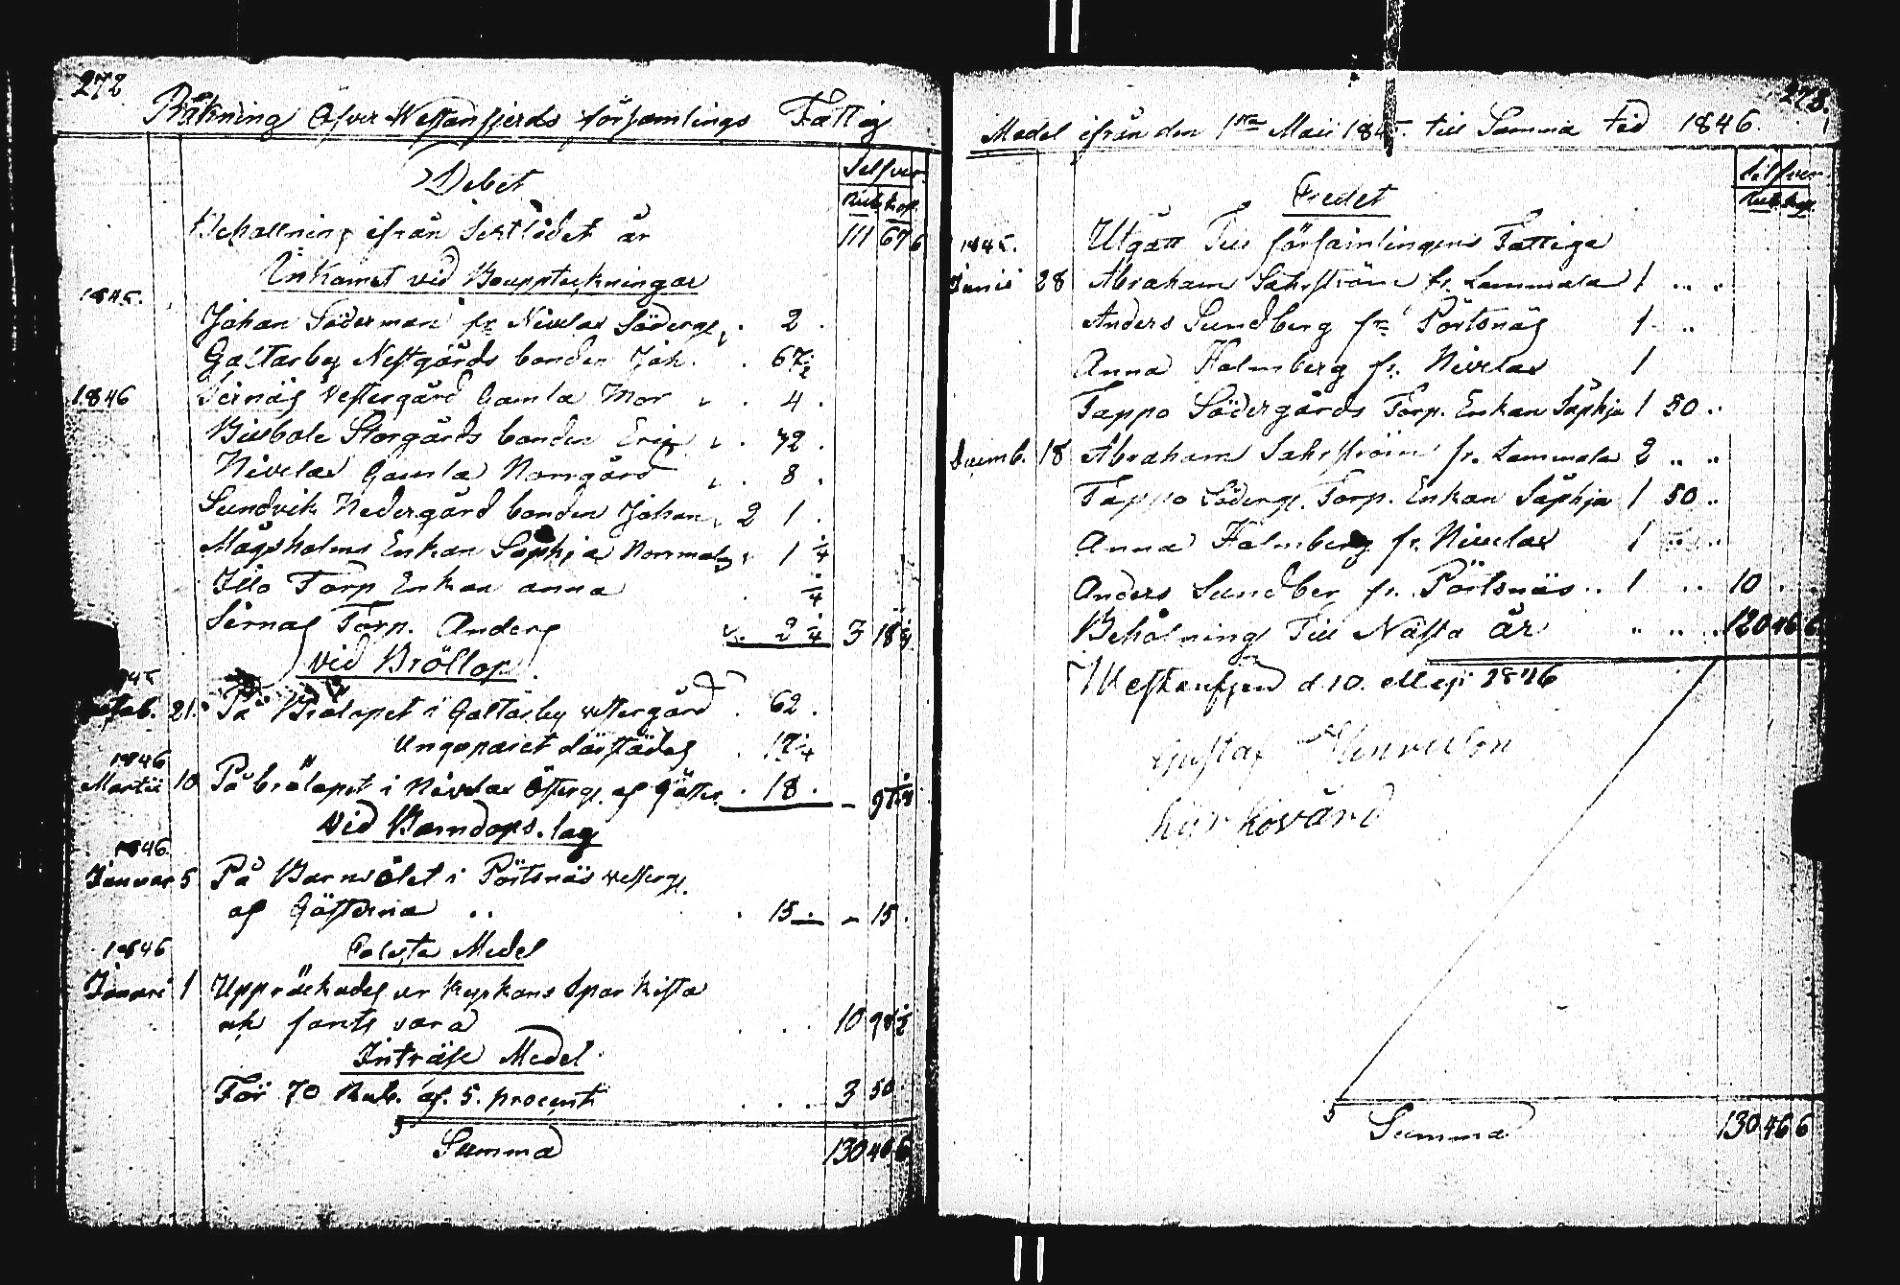 272
Räkning Öfver Westanfjerds församlings Fattig
Debet
Silfver
Rub. kop.
Behållning ifrån sistlidet år 111 67 6
Inkomst vid Bouppteckningar
1845.
Johan Söderman fr. Nivelax Söderg. 2
Galtarby Nestgårds bonden Joh. 67 1/2
1846 Sernäs Vestergård Gamla Mor 4
Billbole Storgårds bonden Eric 72
Nivelax Gamla Norrgård 8
Sundvik Nedergård bonden Johan 2 1
Mågsholms Enkan Sophja 1 1/4
Illo Torp Enkan anna 1/4
Sernäs Torp. Anders 2 1/4 3
vid Bröllop
21. På Brölopet i Galtarby vestergård 62
Ungaparet därstädes
1846
Martii 10 På brölopet i Nivelax Österg. af Gäster 18
vid Barndops-lag
1846.
Januar 5 På Barnsölet i Pörtsnäs vesterg.
af Gästerna 15 15
1846 Medel
Januari 1 Uppräcknades ur Kyrkans Spar Kista
och fants vara 10
Inträse Medel
För 70 Rub. af. 5. procent 3 50
Summa 130 46 6
273
Medel ifrån den 1sta Maii 1845. till Samma tid 1846.
Silfver
Rub. kop.
Credet
1845. Utgått Till församlingens Fattiga
Junii 28 Abraham Sahrström fr. Lammala 1
Anders Sundberg fr. Pörtsnäs 1
Anna Holmberg fr. Nivelax 1
Tappo Södergårds Torp. Enkan Sophja 1 50
Decemb. 18 Abraham Sahrström fr. Lammala 2
Tappo Söderg. Torp. Enkan Sophja 1 50
Anna Holmberg fr. Nivelax 1
Anders Sundber fr. Pörtsnäs 1 10
Behålning Till Nästa år 120 46 6
Westanfjerd d. 10. Maji 1846
Gustaf Henricson
kürkovärd
Summa 130 46 6